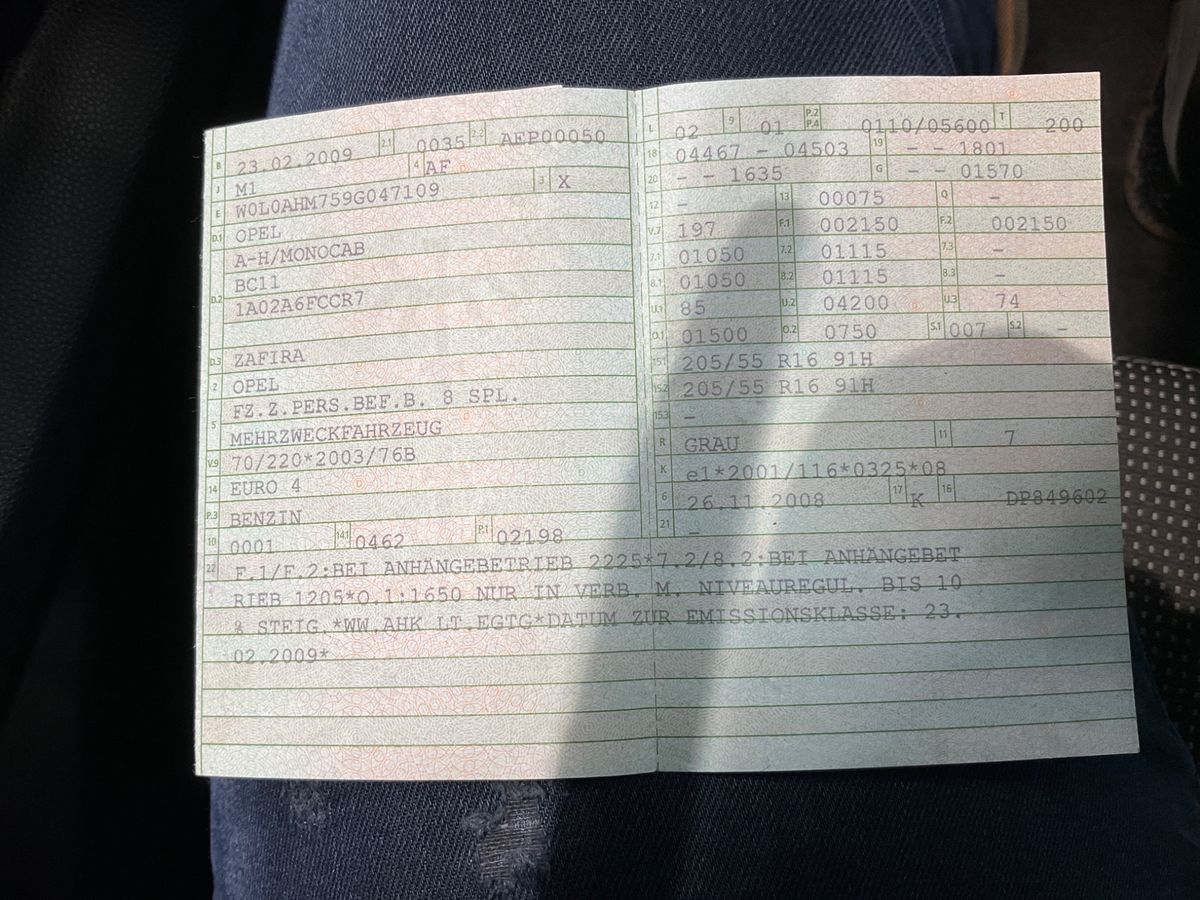 B 23.02.2009 2.1 0035 2.2 AEP00050
J M1 4 AF
E W0L0AHM759G047109 3 X
D.1 OPEL
D.2 A-H/MONOCAB
BC11
1A02A6FCCR7
D.3 ZAFIRA
2 OPEL
5 FZ.Z.PERS.BEF.B. 8 SPL.
MEHRZWECKFAHRZEUG
V.9 70/220*2003/76B
14 EURO 4
P.3 BENZIN
10 0001 14.1 0462 P.1 02198
L 02 9 01 P.2 P.4 0110/05600 T 200
18 04467 - 04503 19 - - 1801
20 - - 1635 G - - 01570
12 - 13 00075 Q -
V.7 197 F.1 002150 F.2 002150
7.1 01050 7.2 01115 7.3 -
8.1 01050 8.2 01115 8.3 -
U.1 85 U.2 04200 U.3 74
O.1 01500 O.2 0750 S.1 007 S.2 -
15.1 205/55 R16 91H
15.2 205/55 R16 91H
15.3 -
R GRAU 11 7
K e1*2001/116*0325*08
6 26.11.2008 17 K 16 DP849602
21 -
22 F.1/F.2:BEI ANHÄNGEBETRIEB 2225*7.2/8.2:BEI ANHÄNGEBET
RIEB 1205*O.1:1650 NUR IN VERB. M. NIVEAUREGUL. BIS 10
% STEIG.*WW.AHK LT.EGTG*DATUM ZUR EMISSIONSKLASSE: 23.
02.2009*